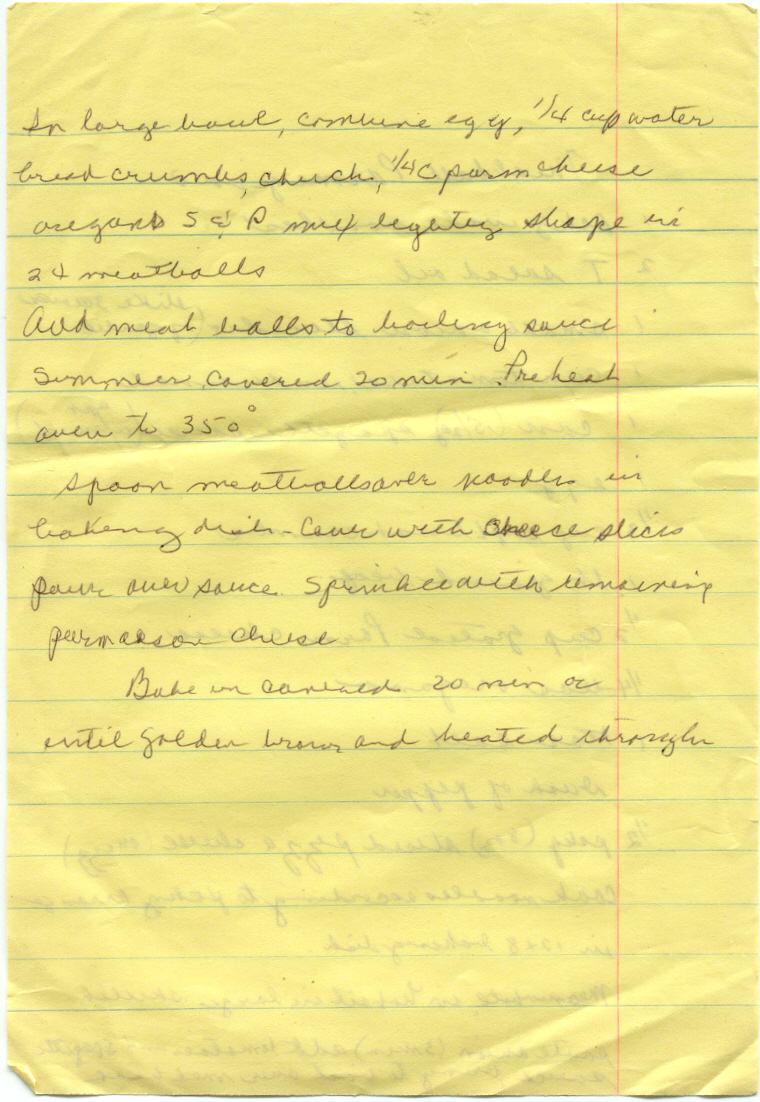 In large bowl, combine egg, 1/4 cup water
bread crumbs, chuck, 1/4 C parm cheese
oregano S & P mix lightly shape in
24 meatballs
Add meat balls to boiling sauce
Simmer, covered 20 min. Preheat
oven to 350°
Spoon meatballs over noodles in
baking dish - Cover with cheese slices
pour over sauce. Sprinkle with remaining
parmason cheese
Bake un covered 20 min or
until golden brown and heated through